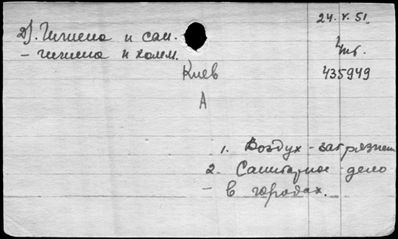 24.V.51.
Д). Гигиена и сан.
- гигиена и комм.
Киев
435949
А
1. Воздух - загрязнен
2. Санитарное дело
- в городах.